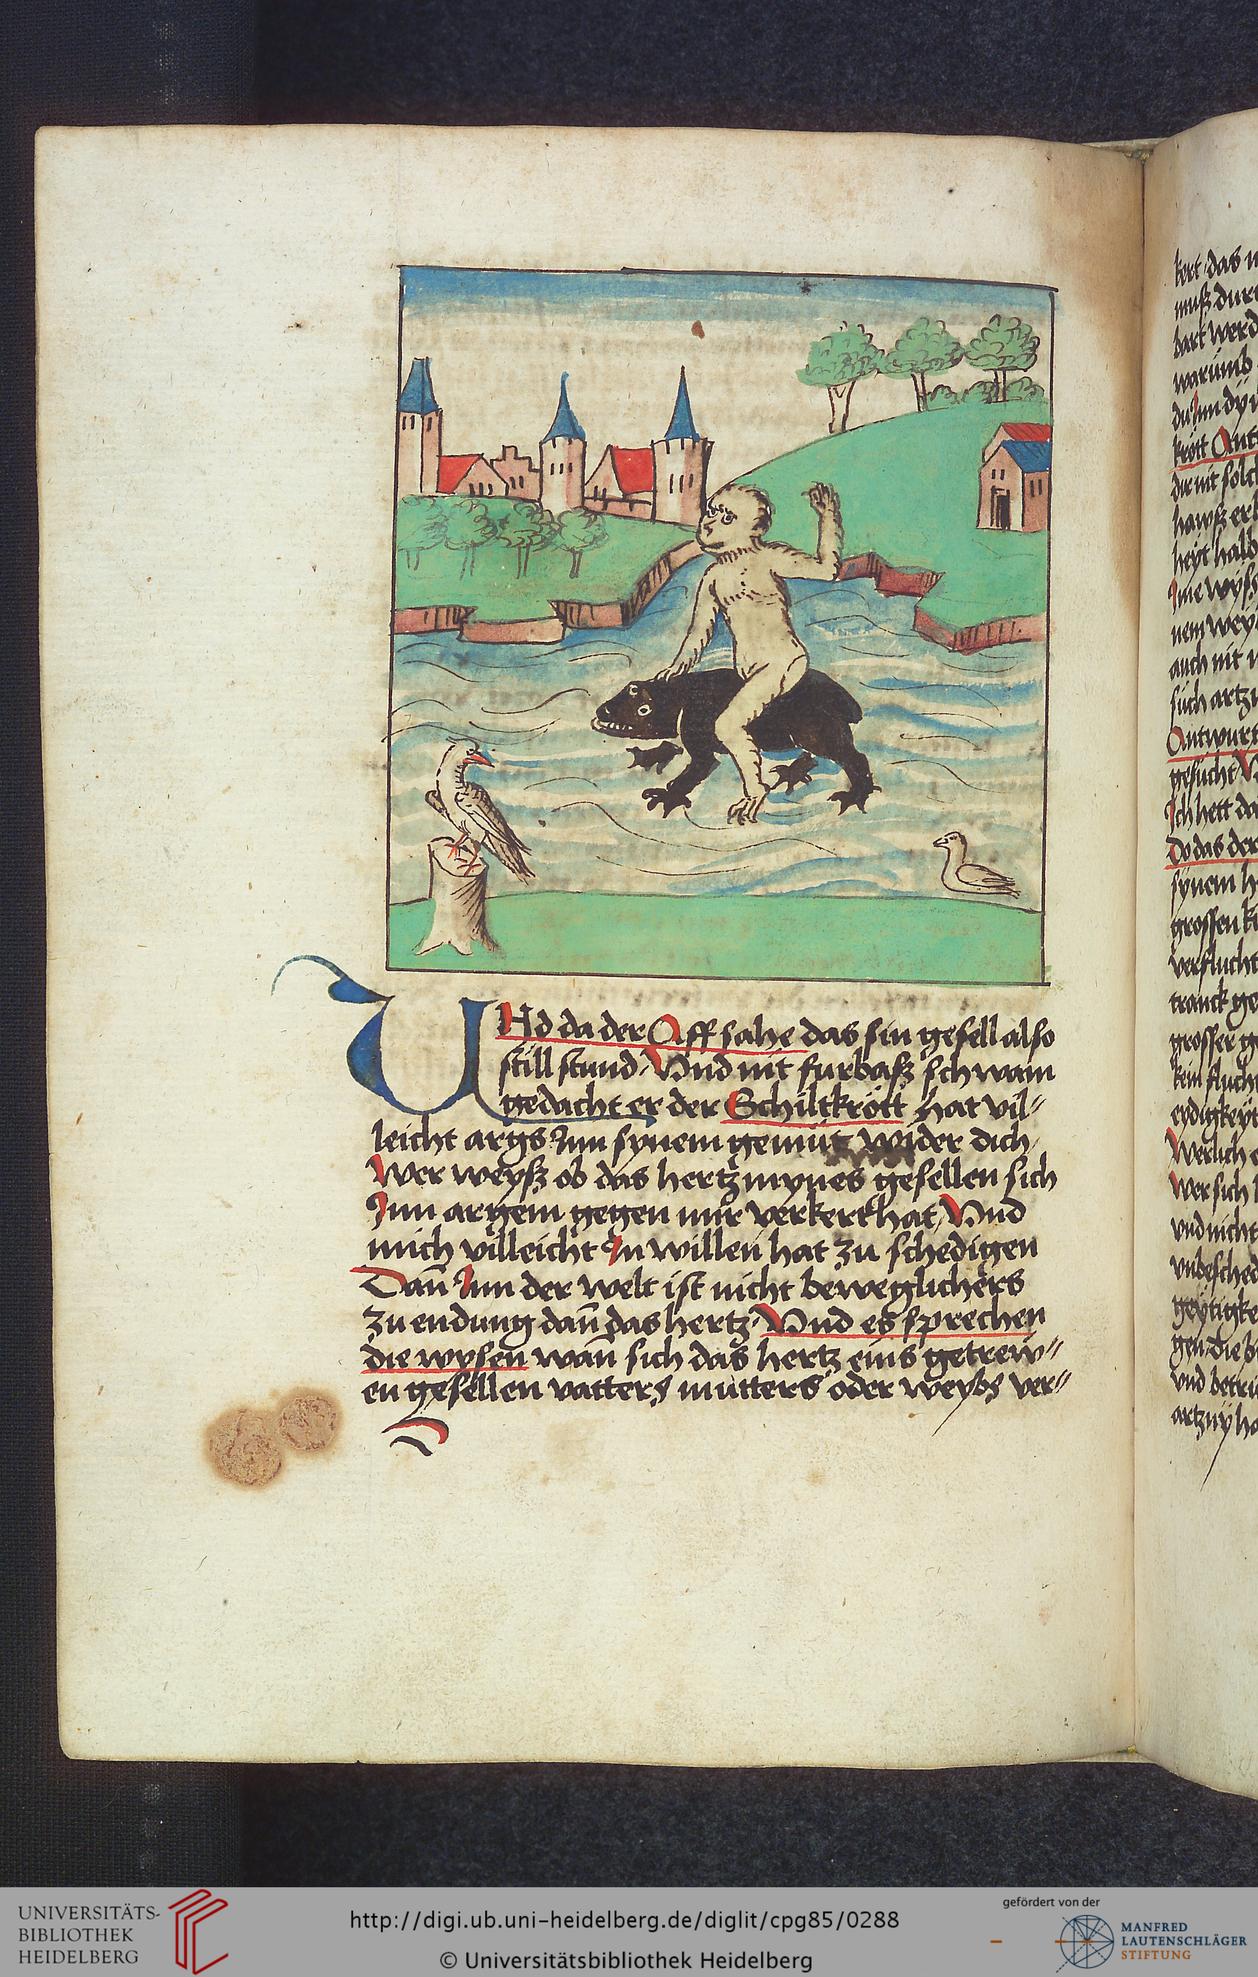 UNd da der Aff sahe das sin gesell also
still stund / Vnd nit furbasz schwam
gedacht er der Schiltkrött hat vil〃
leicht args Inn synem gemüt wider dich /
Wer weysz ob das hertz mynes gesellen sich
Inn argem gegen mir verkert hat / Vnd
mich villeicht In willen hat zu schedigen
Dan̄ Inn der welt ist nicht beweglichers
zu endung dan̄ das hertz / Vnd es sprechen
die wysen wan̄ sich das hertz eins getrew〃
en gesellen vatters mutters oder weybs ver〃
kert / das
musz
bart werd
warumb
du Inn
krött Ant
die nit
hawsz
heyt halb
Ine
nem
auch nit
such artz
Antwurt
gesucht
Ich hett da
Do das der
synem h
grossen
verflucht
tranck ge
grosser
kein flucht
erdigkeyt
Werlich
wer sich
vnd nicht
vnbesched
geytigke
gen die
vnd betri
artzny ha
UNIVERSITÄTS-
BIBLIOTHEK
HEIDELBERG
http://digi.ub.uni-heidelberg.de/diglit/cpg85/0288
© Universitätsbibliothek Heidelberg
gefördert von der
MANFRED
LAUTENSCHLÄGER
STIFTUNG